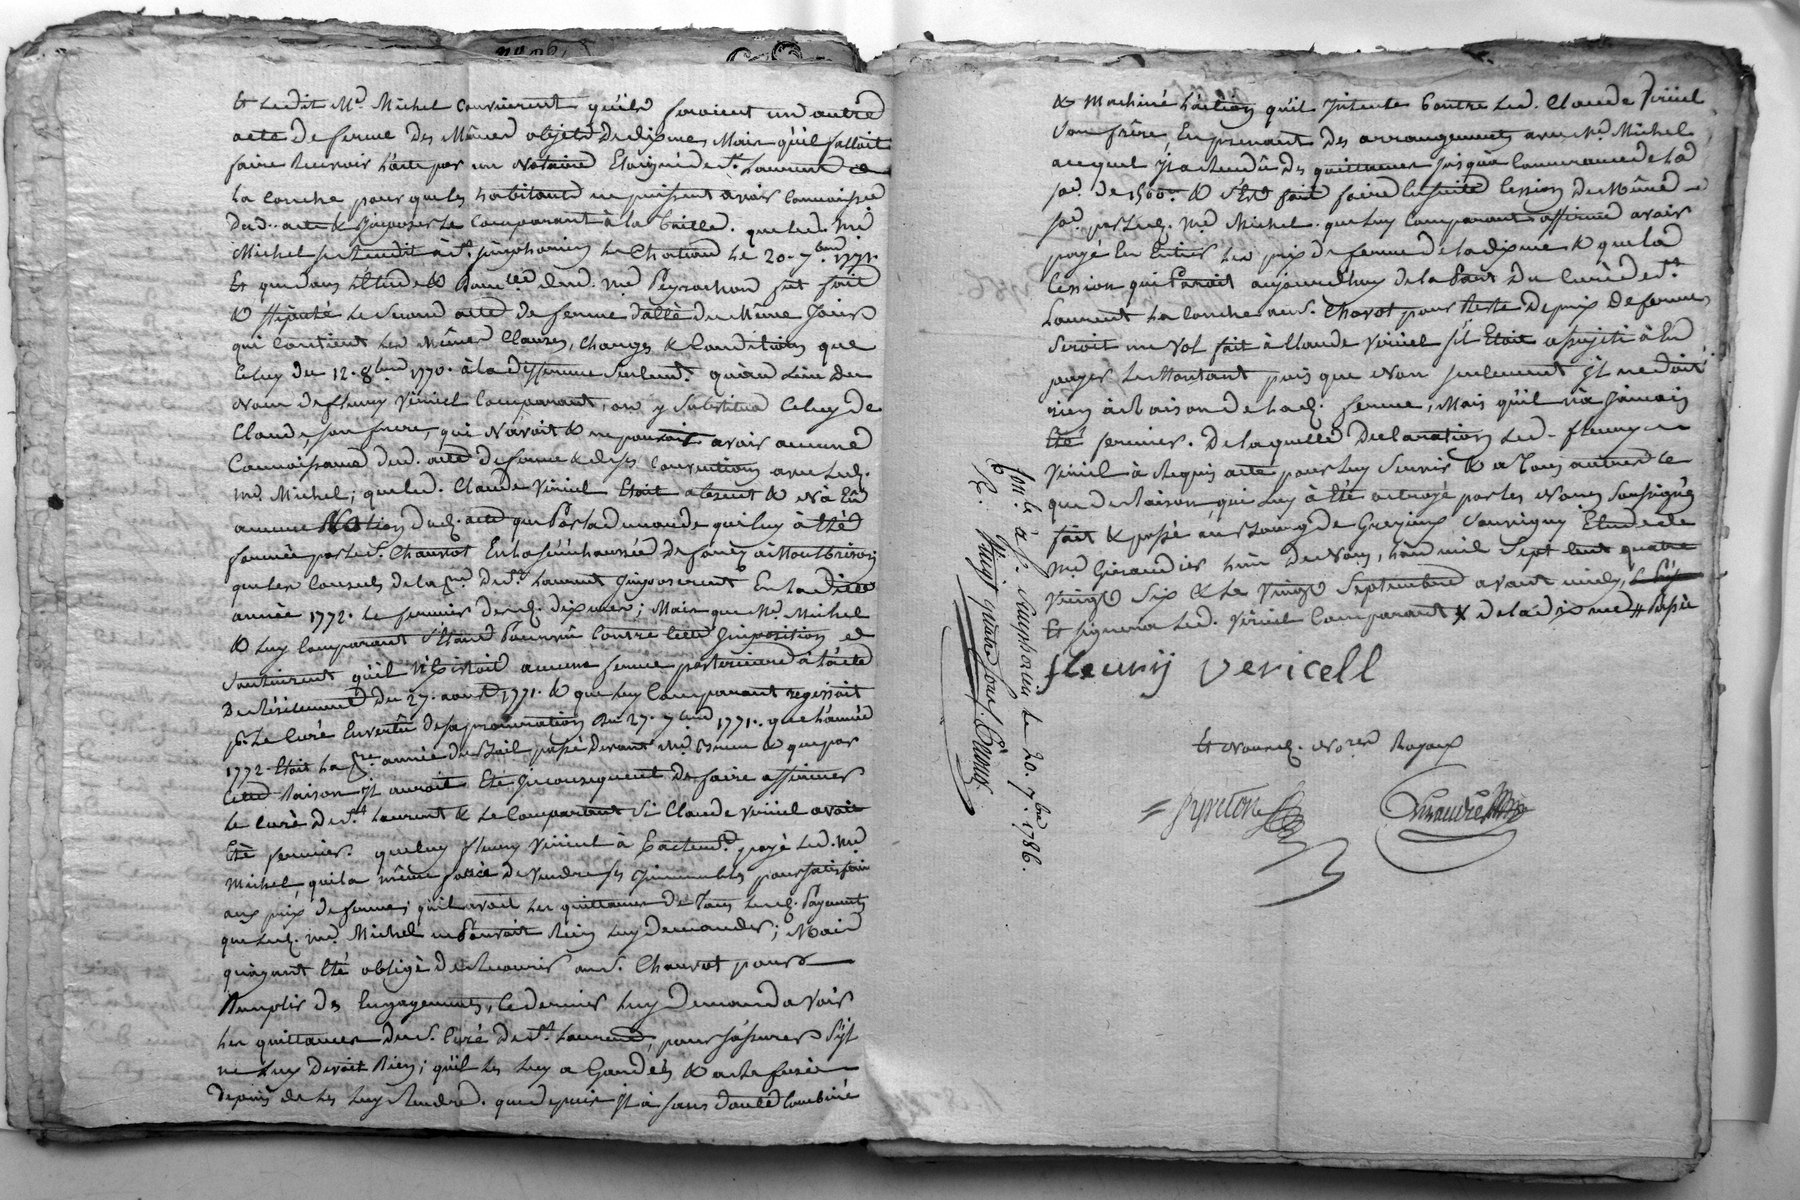 Et ledit Me. Michel convinrent qu'ils feroient un autre
acte de ferme des Mêmes objets de dixmes Mais qu'il falloit
faire Recevoir l'acte par un Notaire Eloigné de St. Laurent
la conche pour que les habitants ne puissent avoir connoissce
dud. acte & Imposer le comparant à la Taille. que led. Me
Michel se Rendit à St. simphorien le Chateau le 20. 7bre 1771.
Et que dans l'Etude & dud. Me Peyrachon fut fait
& stipulé le second acte de ferme datté du Même Jour
qui contient les Mêmes Clauses, charges & Conditions que
Celuy du 12. 8bre 1770. à la differance seulemt. qu'au Lieu du
Nom de fleury Viricel Comparant, on y Substitua Celuy de
Claude, son frere, qui N'avoit & ne pouvoit avoir aucune
Connoissance dud. acte de ferme & des Conventions avec led.
Me. Michel; que led. Claude Viricel Etoit absent & N'a Eû
aucune Notion dud. acte que Par la demande qui luy à Eté
formée par le Sr. Chavrot En la sénéchaussée de forêz à Montbrison;
que les Consuls de la de St. Laurent Imposerent En la ditte
année 1772. le fermier desd. dixmes; Mais que Me. Michel
& luy comparant s'Etant Pourvûs Contre Cette Imposition et
soutinrent qu'il N'Existoit aucune ferme posterieure à l'acte
De Résiliement du 27. aoust 1771. & que luy Comparant regissoit
pr. le Curé En vertû de sa procuration du 27. 7bre 1771. que l'année
1772. Etoit la année du Bail passé devant Me & que par
Cette Raison Il auroit Eté Inconsequent de faire affirmer
le Curé de St. Laurent & le Comparant si Claude Viricel avoit
Eté fermier. que luy fleury Viricel à Exactemt. payé led. Me
Michel, qui la même forcé de Vendre ses Immeubles pour satisfaire
aux prix de ferme; qu'il avoit les quittances de Tous lesd. Payements
que led. Me. Michel ne Pouvoit Rien luy demander; Mais
qu'ayant Eté obligé de Recourir au Sr. Chavrot pour
Remplir des Engagements, Ce dernier luy demanda Voir
les quittances du Sr. Curé de St. Laurent, pour s'assurer s'Il
ne luy Devoit Rien; qu'il les luy a Gardés & a Refusé
depuis de les luy Rendre. que depuis Il à sans doutte Combiné
& Machiné l'action qu'il Intente Contre led. Claude Viricel
son frère En prenant des arrangements avec Me. Michel
auquel Il a Rendû des quittances jusqu'à Concurrance de la
so. de 1500 & s'Est fait faire Ensuitte Cession du Même
so. par led. Me. Michel. que luy Comparant affirme avoir
payé En Entier les prix de ferme de la dixme & que la
Cession qui Paroit aujourdhuy de la Part du Curé de St.
Laurent la Conche au Sr. Chavrot pour Reste de prix de ferme,
seroit un Vol fait à Claude Viricel s'il Etoit assujeti à En
payer le Montant puis que Non seulement Il ne doit
rien à Raison de lad. ferme, Mais qu'il n'a Jamais
Eté fermier. De laquelle Declaration led. fleury
Viricel à Requis acte pour luy servir & a Tous autres ce
que de Raison, qui luy à Eté octroyé par les Nores soussignés
fait & passé au Bourg de Grezieux Souvigny Etude de
Me Giraudier l'un de Nous, l'an mil Sept Cent quatre
Vingt Six & le Vingt Septembre avant midy,
Et signera led. Viricel Comparant
fleurij vericell
Et Nousd. Nores Royaux
Giraudier
Con.lé à St. Simphorien le 20. 7bre 1786.
R. Vingt quatre sous.